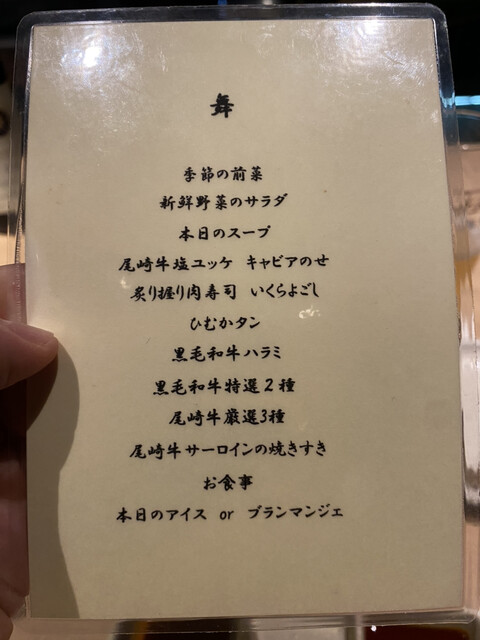 舞
季節の前菜
新鮮野菜のサラダ
本日のスープ
尾崎牛塩ユッケ キャビアのせ
炙り握り肉寿司 いくらよごし
ひむかタン
黒毛和牛ハラミ
黒毛和牛特選2種
尾崎牛厳選3種
尾崎牛サーロインの焼きすき
お食事
本日のアイス or ブランマンジェ